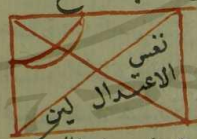 نفس
الاعتدال لين